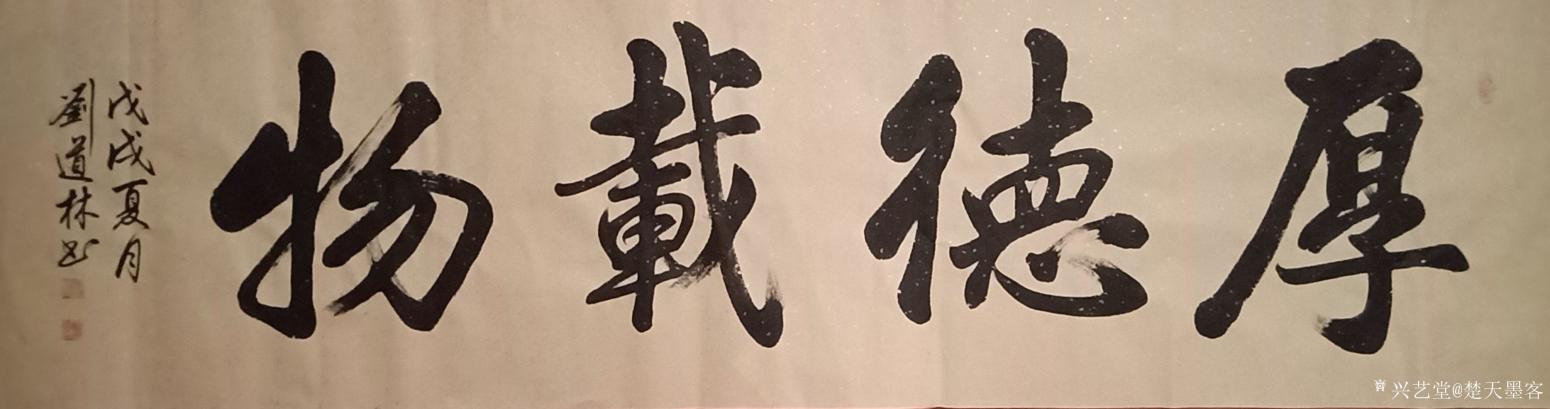 厚德載物
戊戌夏月
劉道林书
兴艺堂@楚天墨客